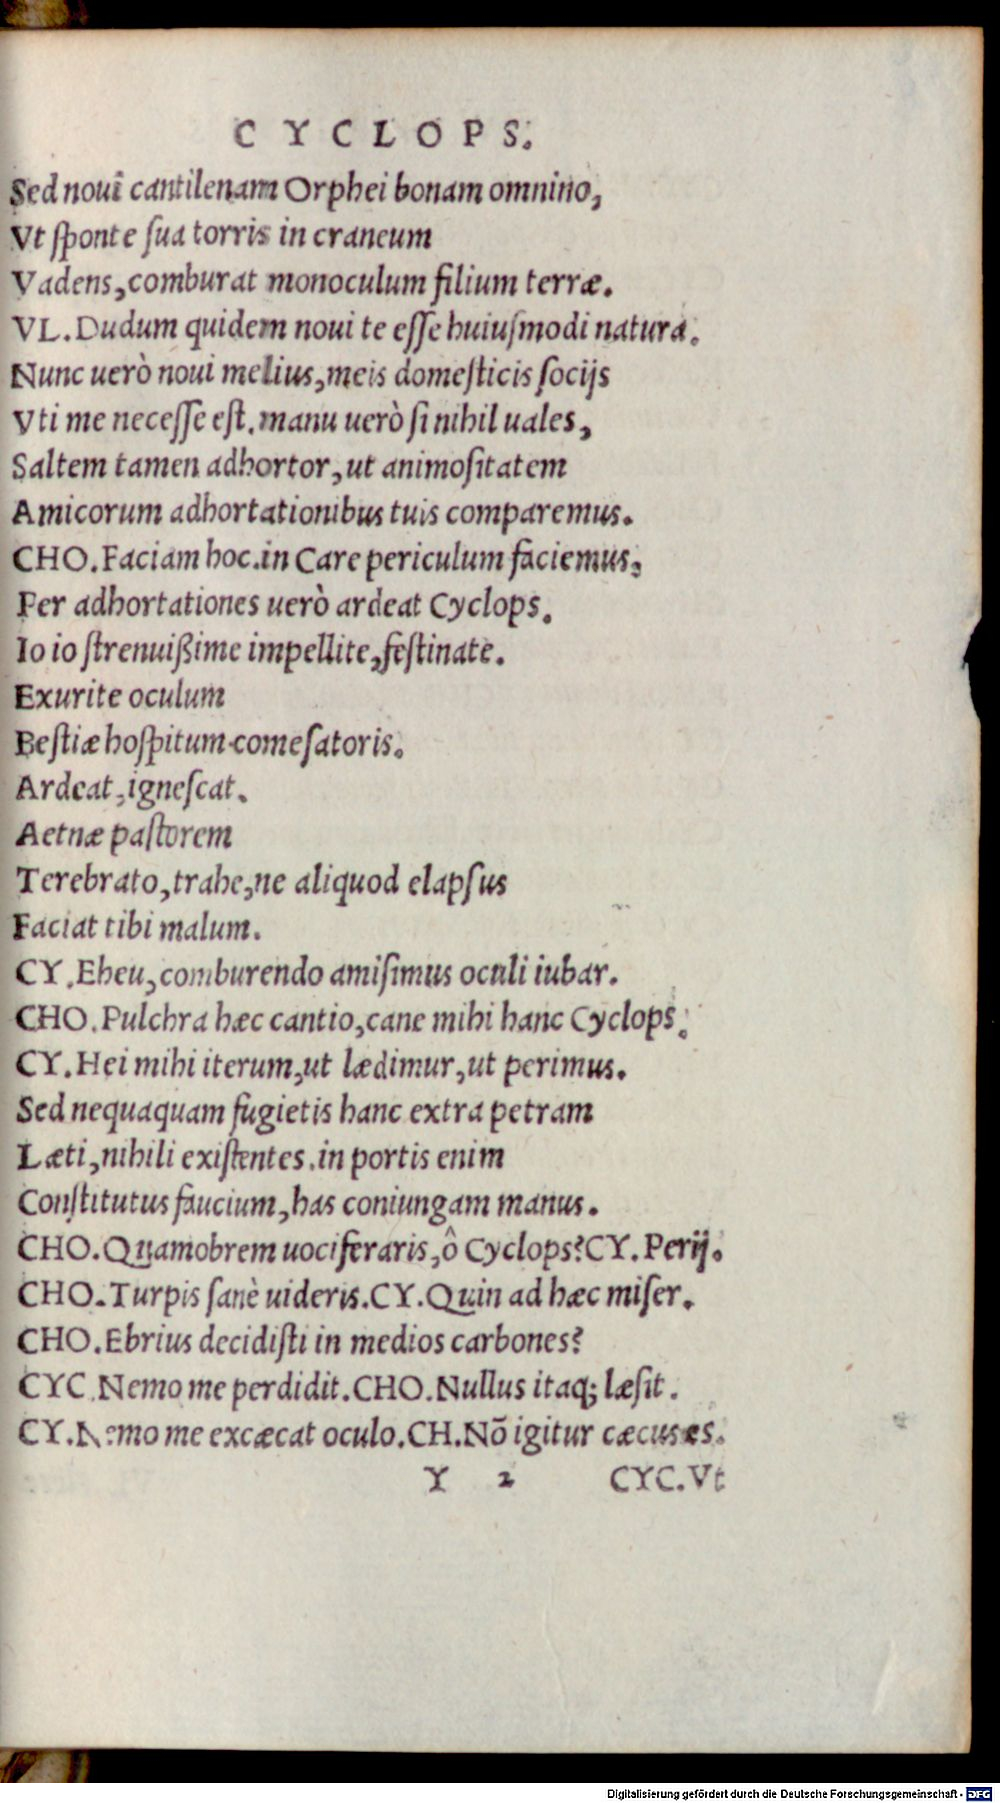 CYCLOPS.
Sed nouī cantilenam Orphei bonam omnino,
Vt sponte sua torris in craneum
Vadens, comburat monoculum filium terræ.
VL. Dudum quidem noui te esse huiusmodi natura.
Nunc uerò noui melius, meis domesticis socijs
Vti me necesse est. manu uerò si nihil uales,
Saltem tamen adhortor, ut animositatem
Amicorum adhortationibus tuis comparemus.
CHO. Faciam hoc. in Care periculum faciemus:
Per adhortationes uerò ardeat Cyclops.
Io io strenuißime impellite, festinate.
Exurite oculum
Bestiæ hospitum comesatoris.
Ardeat, ignescat.
Aetnæ pastorem
Terebrato, trahe, ne aliquod elapsus
Faciat tibi malum.
CY. Eheu, comburendo amisimus oculi iubar.
CHO. Pulchra hæc cantio, cane mihi hanc Cyclops.
CY. Hei mihi iterum, ut lædimur, ut perimus.
Sed nequaquam fugietis hanc extra petram
Læti, nihili existentes. in portis enim
Constitutus faucium, has coniungam manus.
CHO. Quamobrem uociferaris, ô Cyclops? CY. Perij.
CHO. Turpis sanè uideris. CY. Quin ad hæc miser.
CHO. Ebrius decidisti in medios carbones?
CYC Nemo me perdidit. CHO. Nullus itaq; læsit.
CY. Nemo me excæcat oculo. CH. Nō igitur cæcus es.
Y 2 CYC. Vt
Digitalisierung gefördert durch die Deutsche Forschungsgemeinschaft - DFG